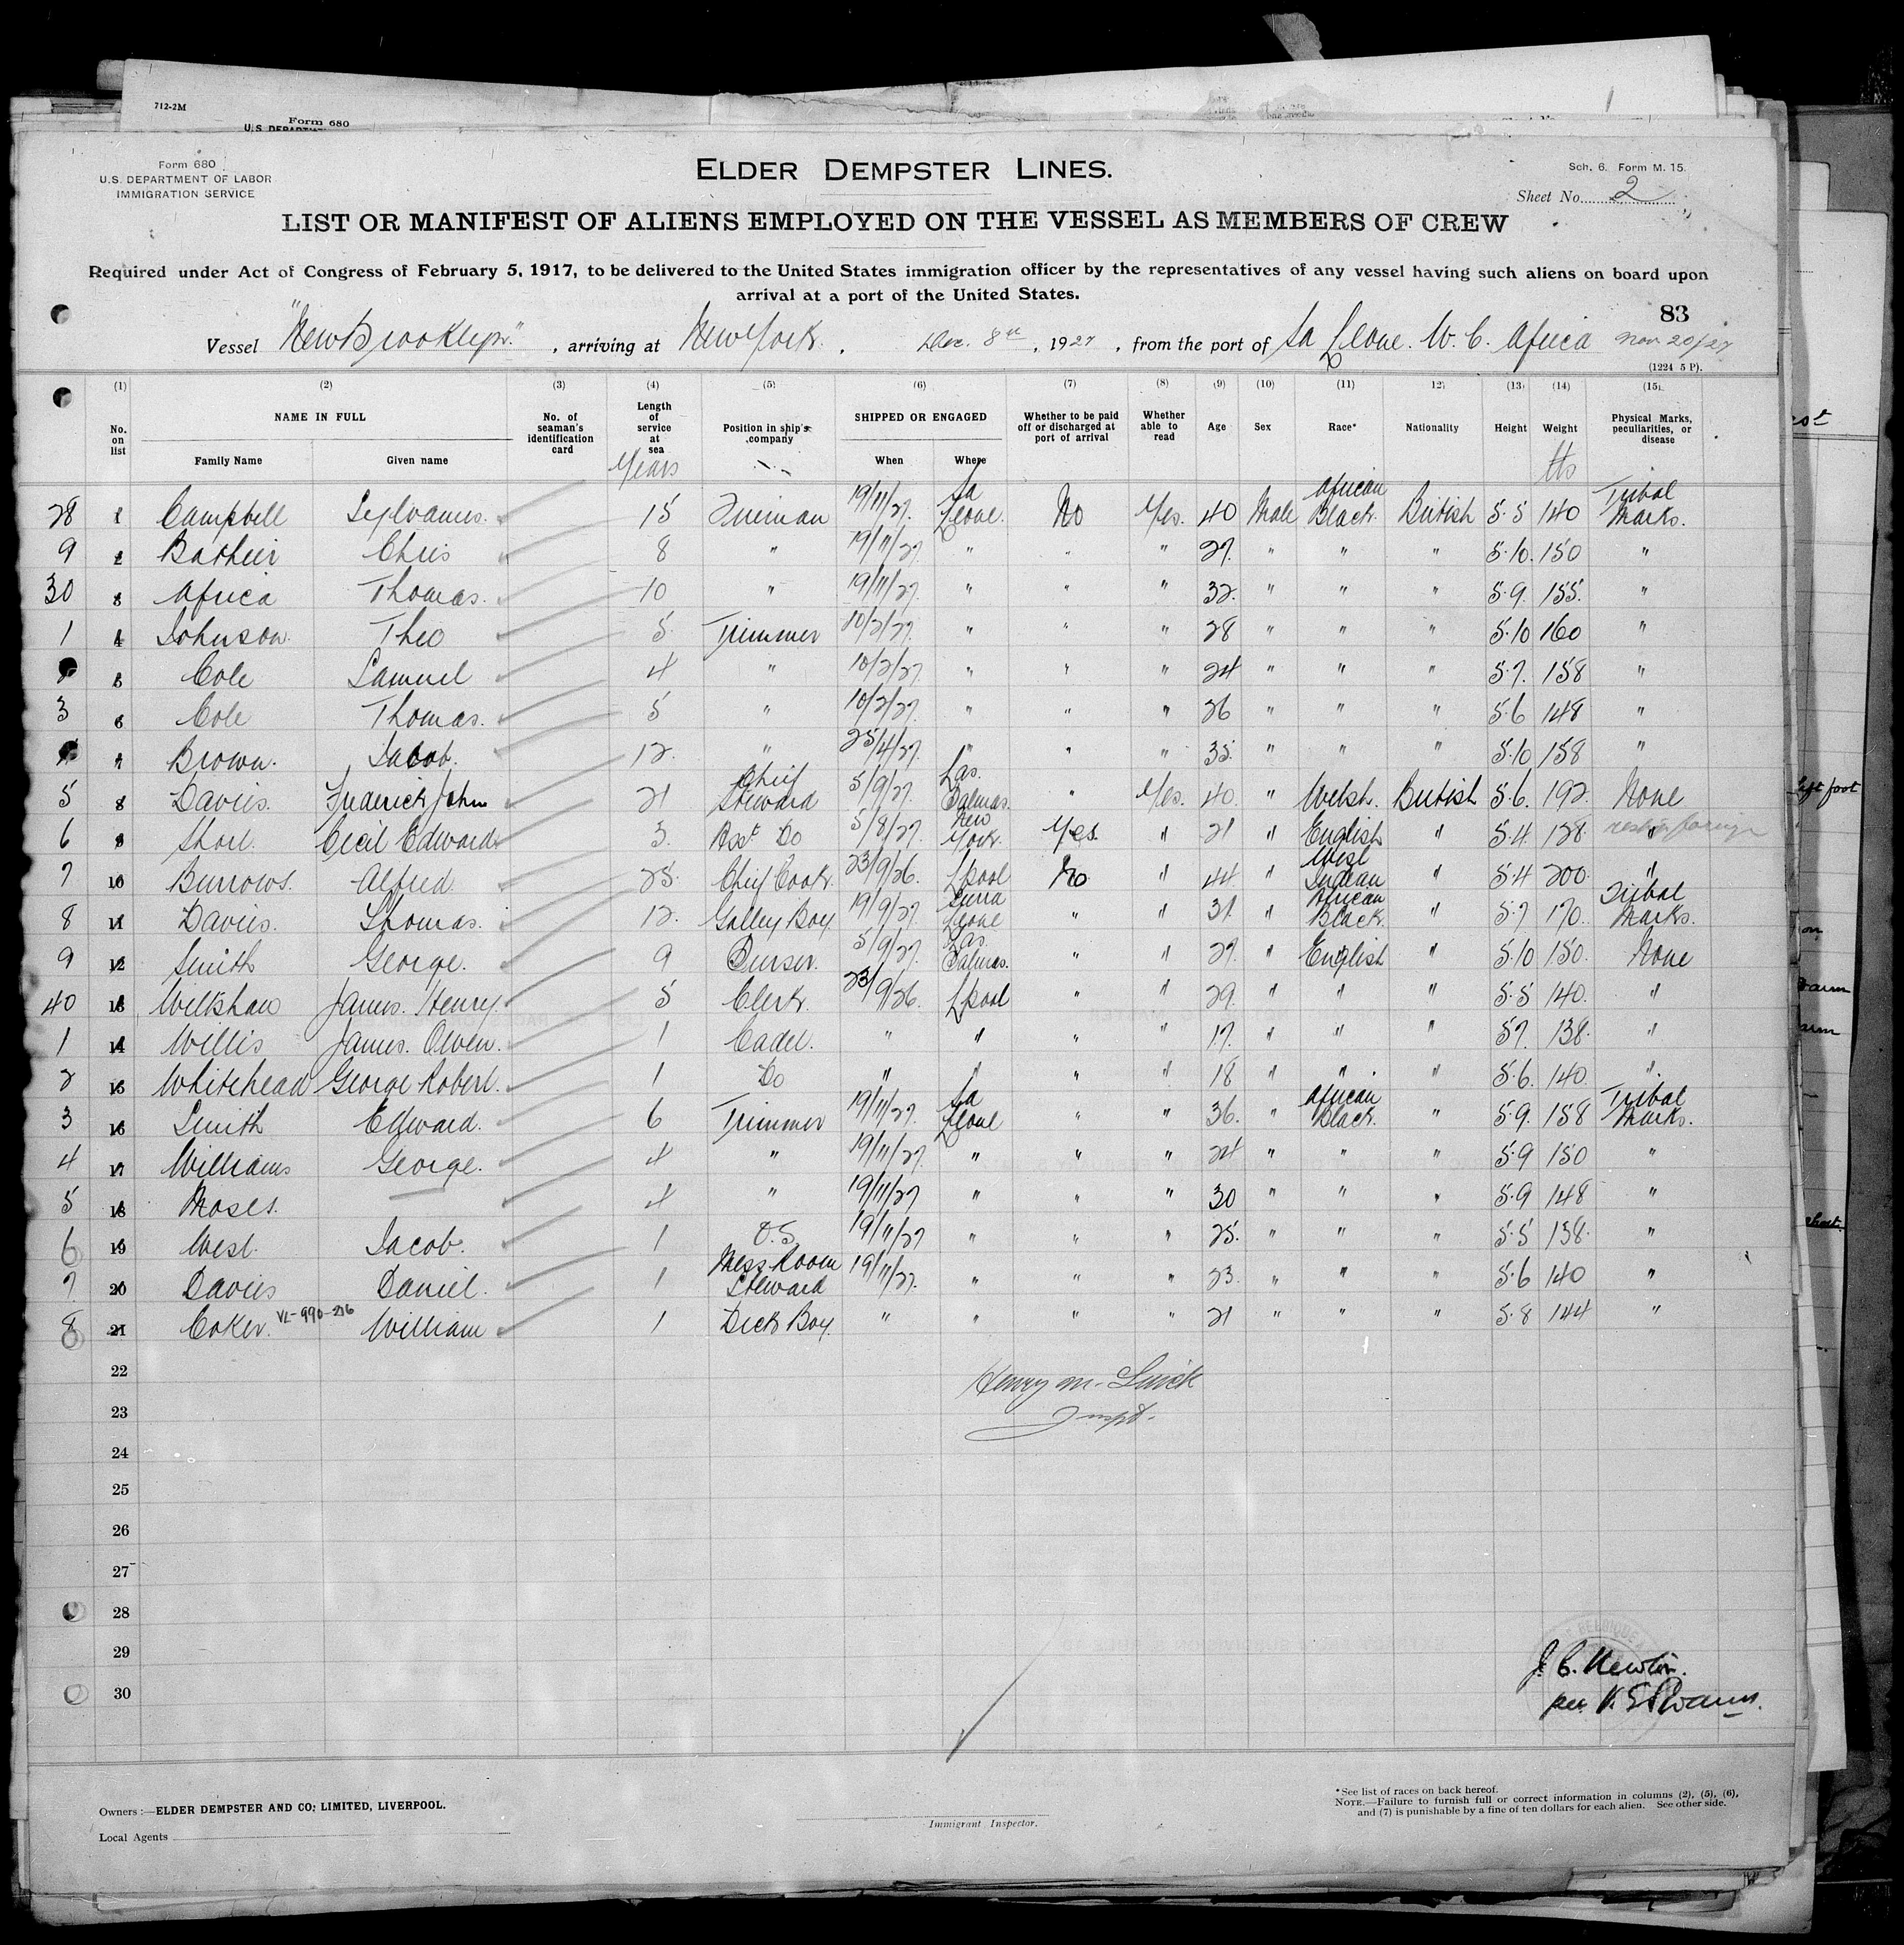 712-2M
Form 680
U.S. DEPARTMENT
Form 680
U.S. DEPARTMENT OF LABOR
IMMIGRATION SERVICE
ELDER DEMPSTER LINES.
Sch. 6. Form M. 15.
Sheet No. 2
LIST OR MANIFEST OF ALIENS EMPLOYED ON THE VESSEL AS MEMBERS OF CREW
Required under Act of Congress of February 5, 1917, to be delivered to the United States immigration officer by the representatives of any vessel having such aliens on board upon
arrival at a port of the United States.
83
Vessel "New Brooklyn", arriving at New York, Dec. 8th, 1927, from the port of Sa Leone. W. C. Africa Nov 20/27
(1224 5 P).
(1) (2) (3) (4) (5) (6) (7) (8) (9) (10) (11) 12) (13) (14) (15)
No. on list NAME IN FULL Family Name Given name No. of seaman's identification card Length of service at sea Years Position in ship's company SHIPPED OR ENGAGED When Where Whether to be paid off or discharged at port of arrival Whether able to read Age Sex Race* Nationality Height Weight lbs Physical Marks, peculiarities, or disease
28 1 Campbell Sylvanus. 15 Fireman 19/11/27. Sa Leone. No Yes. 40 Male African Black. British 5.5 140 Tribal Marks.
9 2 Chris 8 " 19/11/27 " " " 27. " " " 5.10. 150 "
30 3 Africa Thomas. 10 " 19/11/27. " " " 32. " " " 5.9. 155. "
1 4 Johnson. Theo 5 Trimmer 10/2/27. " " " 28 " " " 5.10 160 "
5 Cole Samuel 4 " 10/2/27. " " " 24 " " " 5.7. 158 "
3 6 Cole Thomas. 5 " 10/2/27. " " " 26 " " " 5.6 148 "
7 Brown. Jacob. 12. " 25/4/27. " " " 35. " " " 5.10 158 "
5 8 Davies. Frederick John 21 Chief Steward 5/9/27. Las. Palmas. " Yes. 40. " Welsh. British 5.6. 192. None
6 9 Short. Cecil Edward 3. Asst Do 5/8/27. New York. Yes " 21 " English " 5.4. 128.
7 10 Burrows. Alfred 25. Chief Cook. 23/9/26. L'pool No " 44. " West Indian " 5.4 200. "
8 11 Davies. Thomas. 12. Galley Boy. 19/9/27. Sierra Leone " " 31. " African Black. " 5.7 170. Tribal Marks.
9 12 Smith George. 9 Purser. 5/9/27. Las. Palmas. " " 27. " English " 5.10 150. None
40 13 Wilkshaw James. Henry. 5 Clerk. 23/9/26. L'pool " " 29. " " " 5.5 140. "
1 14 Willis James. Owen. 1 Cadet. " " " " 17. " " " 5.7. 138. "
2 15 Whitehead George Robert. 1 Do " " " " 18 " " " 5.6. 140. "
3 16 Smith Edward. 6 Trimmer 19/11/27. Sa Leone " " 36. " African Black. " 5.9. 158 Tribal Marks.
4 17 Williams George. 4 " 19/11/27. " " " 24 " " " 5.9 150 "
5 18 Moses. — 4 " 19/11/27 " " " 30 " " " 5.9 148 "
6 19 West. Jacob. 1 O.S. 19/11/27 " " " 25. " " " 5.5 138. "
7 20 Davies Daniel. 1 Mess Room Steward 19/11/27. " " " 23. " " " 5.6 140 "
8 21 Coker. VL-990-216 William 1 Deck Boy. " " " " 21 " " " 5.8 144 "
22
Henry M.
Inspt.
23
24
25
26
27
28
29
30
J. C. Newton.
per
Owners:—ELDER DEMPSTER AND CO; LIMITED, LIVERPOOL.
Local Agents
Immigrant Inspector.
*See list of races on back hereof.
NOTE.—Failure to furnish full or correct information in columns (2), (5), (6),
and (7) is punishable by a fine of ten dollars for each alien. See other side.
left foot
arm